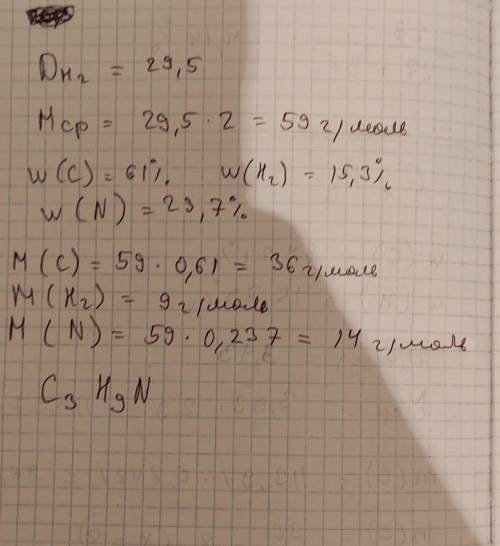 D H₂ = 29,5
Mср = 29,5 · 2 = 59 г/моль
w(C) = 61% w(H₂) = 15,3%
w(N) = 23,7%
M(C) = 59 · 0,61 = 36 г/моль
M(H₂) = 9 г/моль
M(N) = 59 · 0,237 = 14 г/моль
C₃H₉N